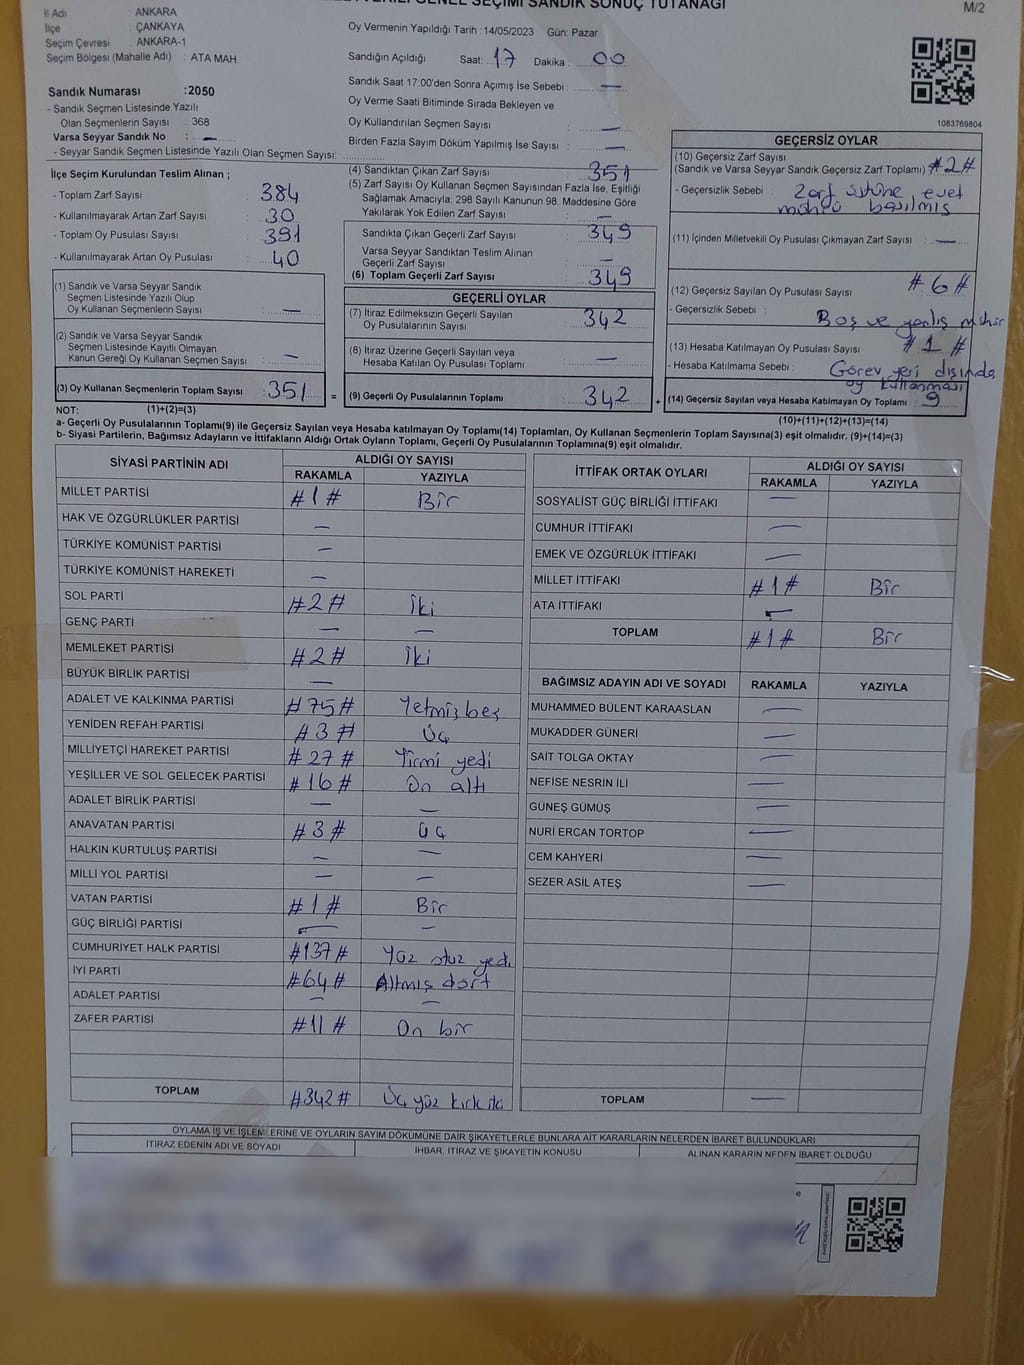 SEÇİMİ SANDIK SONUÇ TUTANAĞI
M/2
İl Adı : ANKARA
İlçe : ÇANKAYA
Seçim Çevresi : ANKARA-1
Seçim Bölgesi (Mahalle Adı) : ATA MAH.
Oy Vermenin Yapıldığı Tarih : 14/05/2023 Gün: Pazar
Sandığın Açıldığı Saat: 17 Dakika : 00
Sandık Saat 17:00'den Sonra Açımış İse Sebebi : —
Oy Verme Saati Bitiminde Sırada Bekleyen ve
Oy Kullandırılan Seçmen Sayısı : —
Birden Fazla Sayım Döküm Yapılmış İse Sayısı : —
Sandık Numarası :2050
- Sandık Seçmen Listesinde Yazılı
Olan Seçmenlerin Sayısı : 368
Varsa Seyyar Sandık No : —
- Seyyar Sandık Seçmen Listesinde Yazılı Olan Seçmen Sayısı:
1083769804
İlçe Seçim Kurulundan Teslim Alınan ;
- Toplam Zarf Sayısı : 384
- Kullanılmayarak Artan Zarf Sayısı : 30
- Toplam Oy Pusulası Sayısı : 391
- Kullanılmayarak Artan Oy Pusulası : 40
(1) Sandık ve Varsa Seyyar Sandık
Seçmen Listesinde Yazılı Olup
Oy Kullanan Seçmenlerin Sayısı : —
(2) Sandık ve Varsa Seyyar Sandık
Seçmen Listesinde Kayıtlı Olmayan
Kanun Gereği Oy Kullanan Seçmen Sayısı : —
(3) Oy Kullanan Seçmenlerin Toplam Sayısı : 351 =
(4) Sandıktan Çıkan Zarf Sayısı : 351
(5) Zarf Sayısı Oy Kullanan Seçmen Sayısından Fazla İse, Eşitliği
Sağlamak Amacıyla; 298 Sayılı Kanunun 98. Maddesine Göre
Yakılarak Yok Edilen Zarf Sayısı : —
Sandıkta Çıkan Geçerli Zarf Sayısı : 349
Varsa Seyyar Sandıktan Teslim Alınan
Geçerli Zarf Sayısı : —
(6) Toplam Geçerli Zarf Sayısı : 349
GEÇERLİ OYLAR
(7) İtiraz Edilmeksizin Geçerli Sayılan
Oy Pusulalarının Sayısı : 342
(8) İtiraz Üzerine Geçerli Sayılan veya
Hesaba Katılan Oy Pusulası Toplamı : —
(9) Geçerli Oy Pusulalarının Toplamı : 342 +
GEÇERSİZ OYLAR
(10) Geçersiz Zarf Sayısı
(Sandık ve Varsa Seyyar Sandık Geçersiz Zarf Toplamı) : #2#
- Geçersizlik Sebebi : Zarf üstüne evet
mührü basılmış
(11) İçinden Milletvekili Oy Pusulası Çıkmayan Zarf Sayısı : —
(12) Geçersiz Sayılan Oy Pusulası Sayısı : #6#
- Geçersizlik Sebebi : Boş ve yanlış mühür
(13) Hesaba Katılmayan Oy Pusulası Sayısı : #1#
- Hesaba Katılmama Sebebi : Görev yeri dışında
oy kullanması
(14) Geçersiz Sayılan veya Hesaba Katılmayan Oy Toplamı : 9
NOT: (1)+(2)=(3)
(10)+(11)+(12)+(13)=(14)
a- Geçerli Oy Pusulalarının Toplamı(9) ile Geçersiz Sayılan veya Hesaba katılmayan Oy Toplamı(14) Toplamları, Oy Kullanan Seçmenlerin Toplam Sayısına(3) eşit olmalıdır. (9)+(14)=(3)
b- Siyasi Partilerin, Bağımsız Adayların ve İttifakların Aldığı Ortak Oyların Toplamı, Geçerli Oy Pusulalarının Toplamına(9) eşit olmalıdır.
SİYASİ PARTİNİN ADI ALDIĞI OY SAYISI
RAKAMLA YAZIYLA
MİLLET PARTİSİ #1# Bir
HAK VE ÖZGÜRLÜKLER PARTİSİ —
TÜRKİYE KOMÜNİST PARTİSİ —
TÜRKİYE KOMÜNİST HAREKETİ —
SOL PARTİ #2# İki
GENÇ PARTİ — —
MEMLEKET PARTİSİ #2# İki
BÜYÜK BİRLİK PARTİSİ —
ADALET VE KALKINMA PARTİSİ #75# Yetmiş beş
YENİDEN REFAH PARTİSİ #3# Üç
MİLLİYETÇİ HAREKET PARTİSİ #27# Yirmi yedi
YEŞİLLER VE SOL GELECEK PARTİSİ #16# On altı
ADALET BİRLİK PARTİSİ — —
ANAVATAN PARTİSİ #3# üç
HALKIN KURTULUŞ PARTİSİ — —
MİLLİ YOL PARTİSİ — —
VATAN PARTİSİ #1# Bir
GÜÇ BİRLİĞİ PARTİSİ — —
CUMHURİYET HALK PARTİSİ #137# Yüz otuz yedi
İYİ PARTİ #64# Altmış dört
ADALET PARTİSİ — —
ZAFER PARTİSİ #11# On bir
TOPLAM #342# Üç yüz kırk iki
İTTİFAK ORTAK OYLARI ALDIĞI OY SAYISI
RAKAMLA YAZIYLA
SOSYALİST GÜÇ BİRLİĞİ İTTİFAKI —
CUMHUR İTTİFAKI —
EMEK VE ÖZGÜRLÜK İTTİFAKI —
MİLLET İTTİFAKI #1# Bir
ATA İTTİFAKI —
TOPLAM #1# Bir
BAĞIMSIZ ADAYIN ADI VE SOYADI RAKAMLA YAZIYLA
MUHAMMED BÜLENT KARAASLAN —
MUKADDER GÜNERİ —
SAİT TOLGA OKTAY —
NEFİSE NESRİN İLİ —
GÜNEŞ GÜMÜŞ —
NURİ ERCAN TORTOP —
CEM KAHYERİ —
SEZER ASİL ATEŞ —
TOPLAM —
OYLAMA İŞ VE İŞLEMLERİNE VE OYLARIN SAYIM DÖKÜMÜNE DAİR ŞİKAYETLERLE BUNLARA AİT KARARLARIN NELERDEN İBARET BULUNDUKLARI
İTİRAZ EDENİN ADI VE SOYADI İHBAR, İTİRAZ VE ŞİKAYETİN KONUSU ALINAN KARARIN NEDEN İBARET OLDUĞU